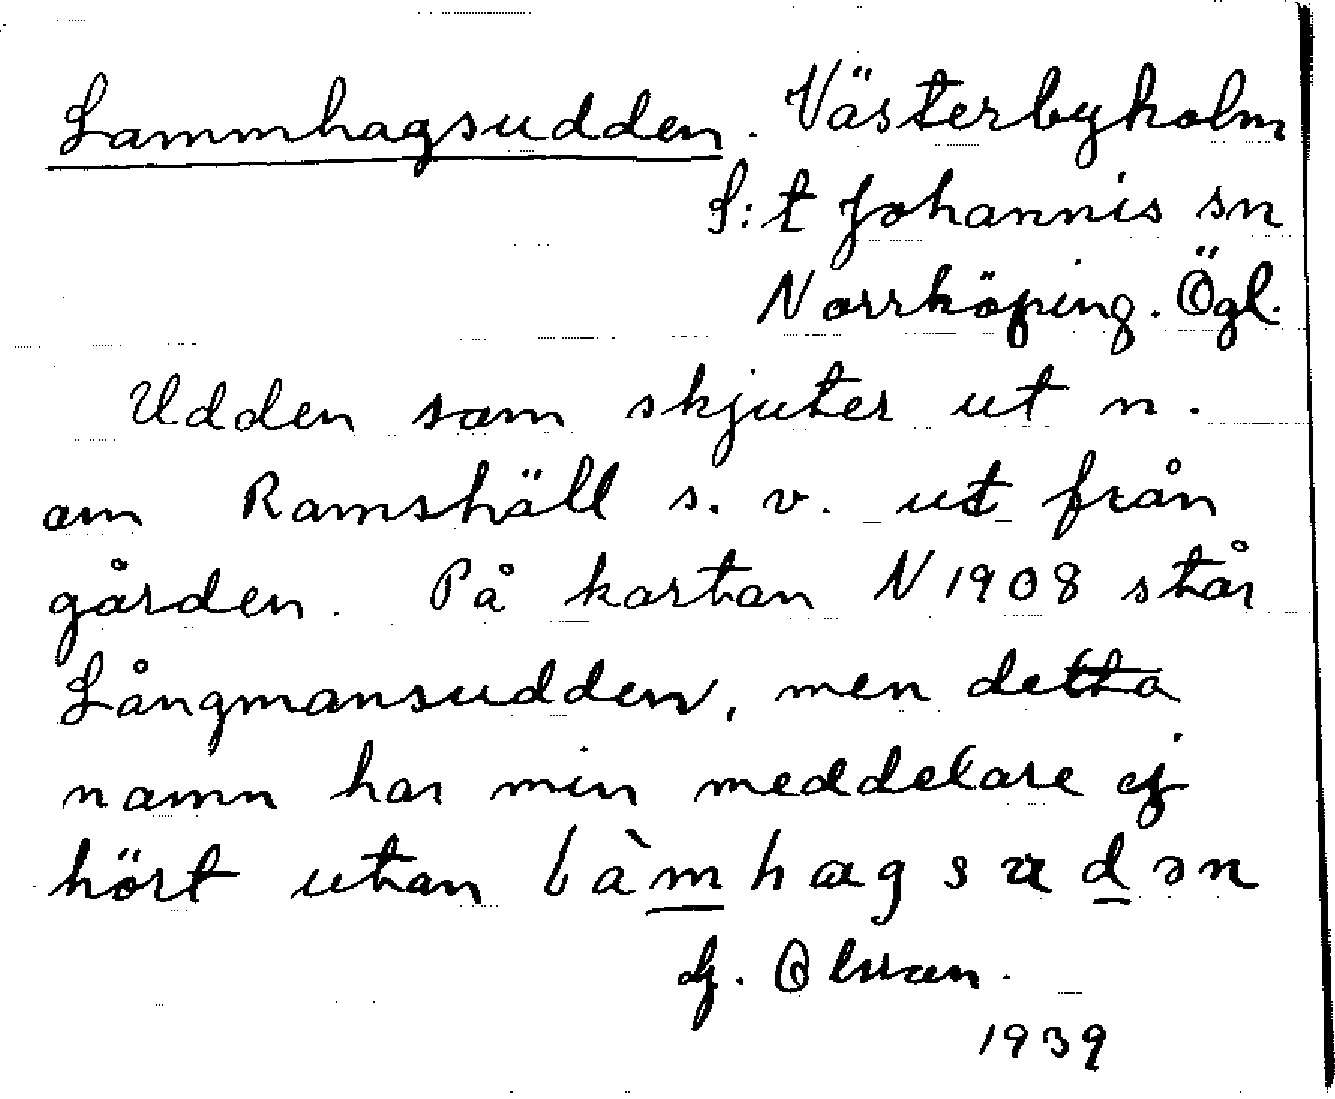 Lammhagsudden. Västerbyholm
S:t Johannis sn
Norrköping. Ögl.
Udden som skjuter ut n.
om Ramshäll s.v. ut från
gården. På kartan N 1908 står
Långmansudden, men detta
namn har min meddelare ej
hört utan làmhagsudən
G. Olsson.
1939